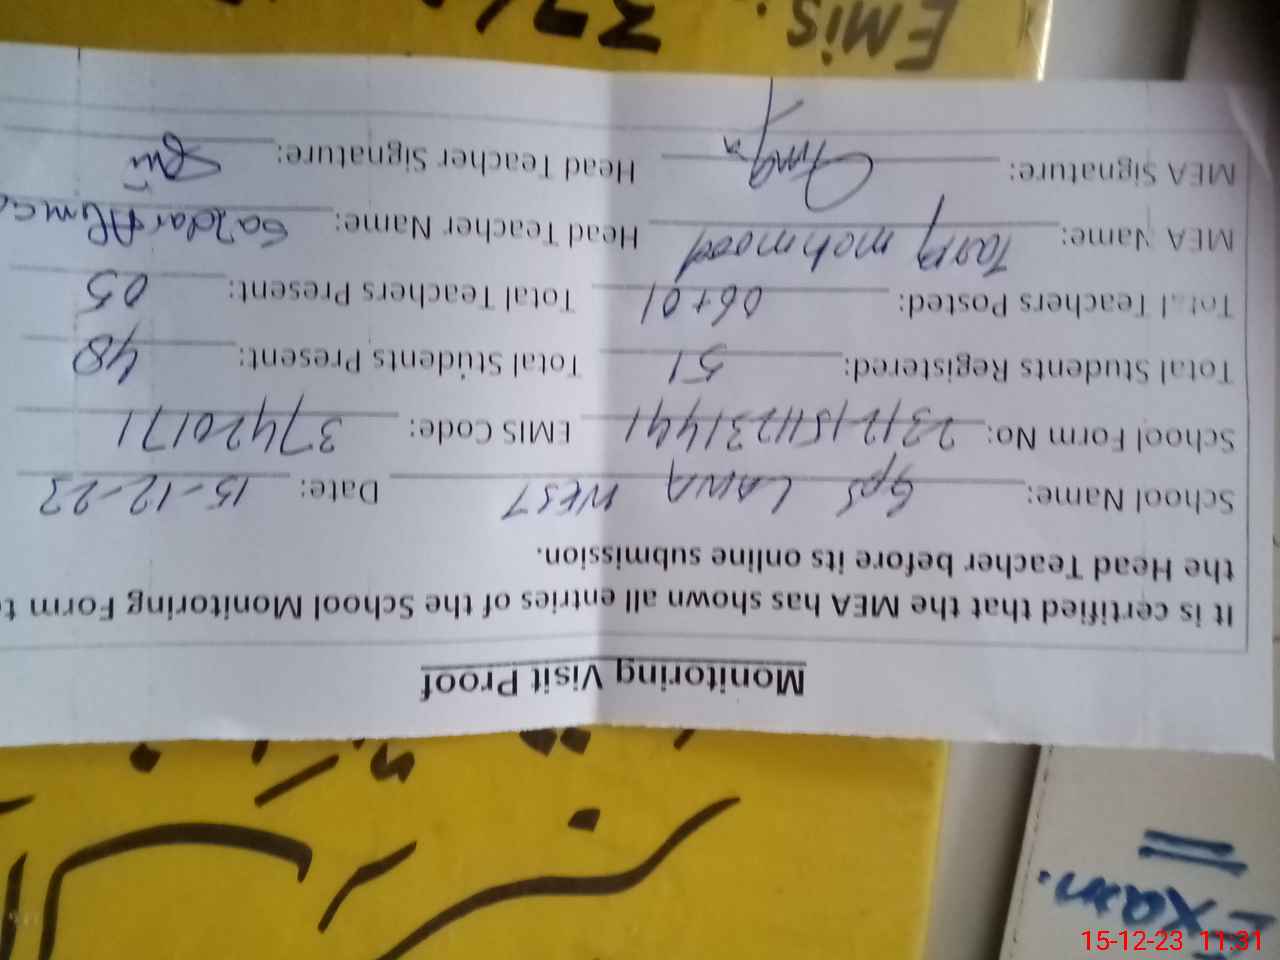 Monitoring Visit Proof
It is certified that the MEA has shown all entries of the School Monitoring Form t
the Head Teacher before its online submission.
School Name: Gps LAWA WEST Date: 15-12-23
School Form No: 231215112231441 EMIS Code: 37420171
Total Students Registered: 51 Total Students Present: 48
Total Teachers Posted: 06+01 Total Teachers Present: 05
MEA Name: Tariq mehmood Head Teacher Name:
MEA Signature: Head Teacher Signature:
Emis.
Exam.
15-12-23 11:31